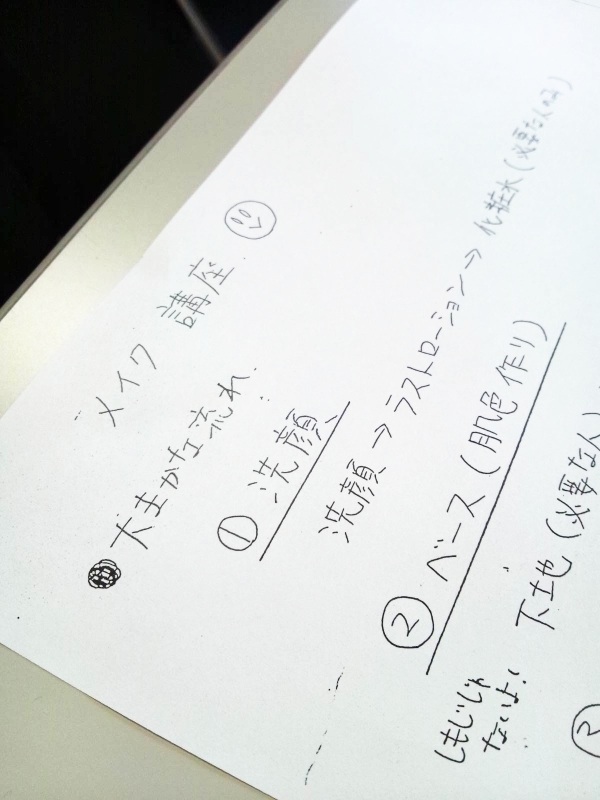 メイク 講座
● 大まかな流れ.
① 洗顔
洗顔 → ラストローション → 化粧水 (必要な人のみ)
② ベース (肌色作り)
下地 (必要な人)
しもじじゃ
ないよ!